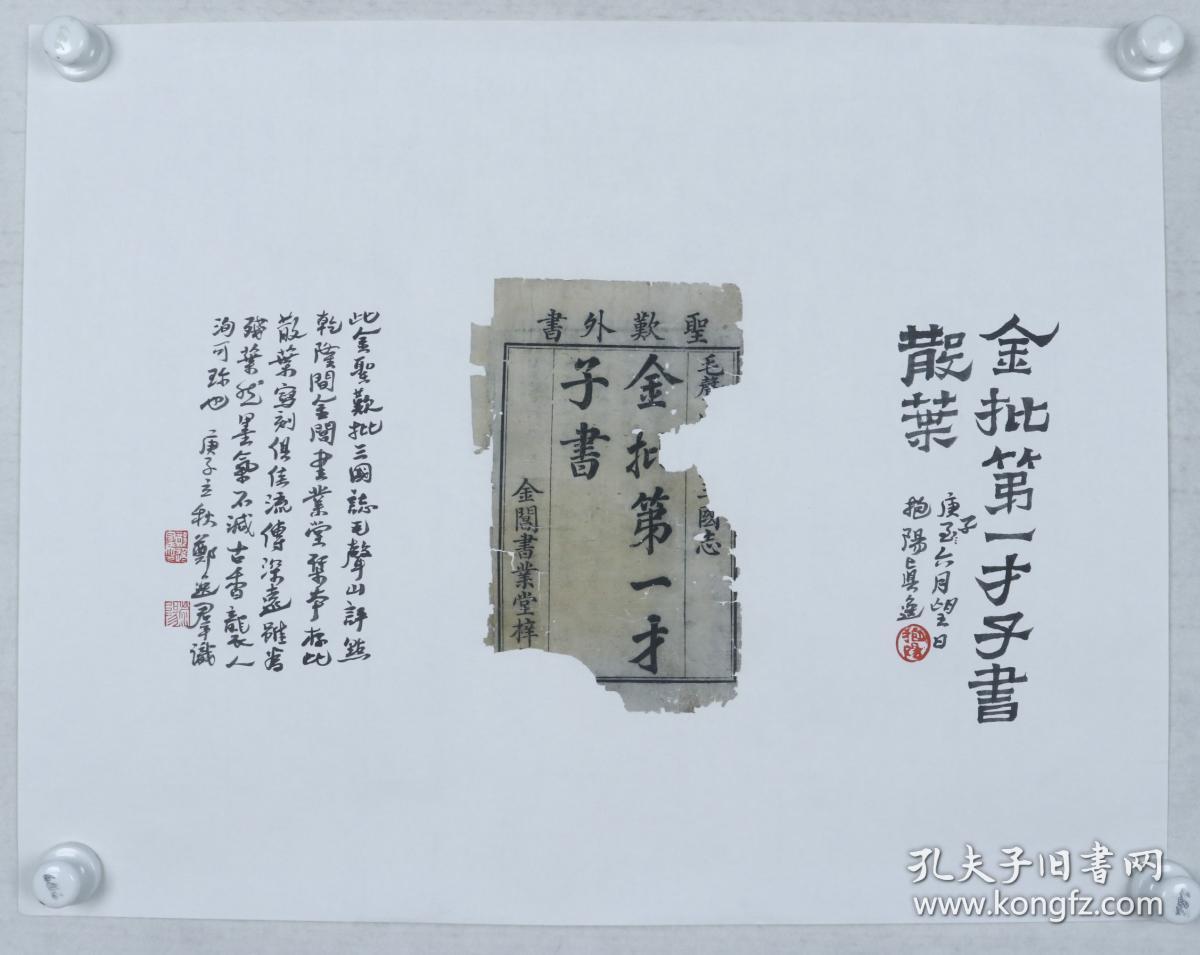 金批第一才子書
散葉
庚子六月望日
抱陽
聖歎外書
毛聲 三國志
金批第一才
子書
金閶書業堂梓
此金聖歎批三國誌毛聲山評點
乾隆間金閶書業堂 本存此
散葉寫刻俱佳流傳深遠雖爲
殘葉然墨氣不減古香襲人
洵可珍也 庚子立秋 鄭逸羣識
孔夫子旧书网
www.kongfz.com